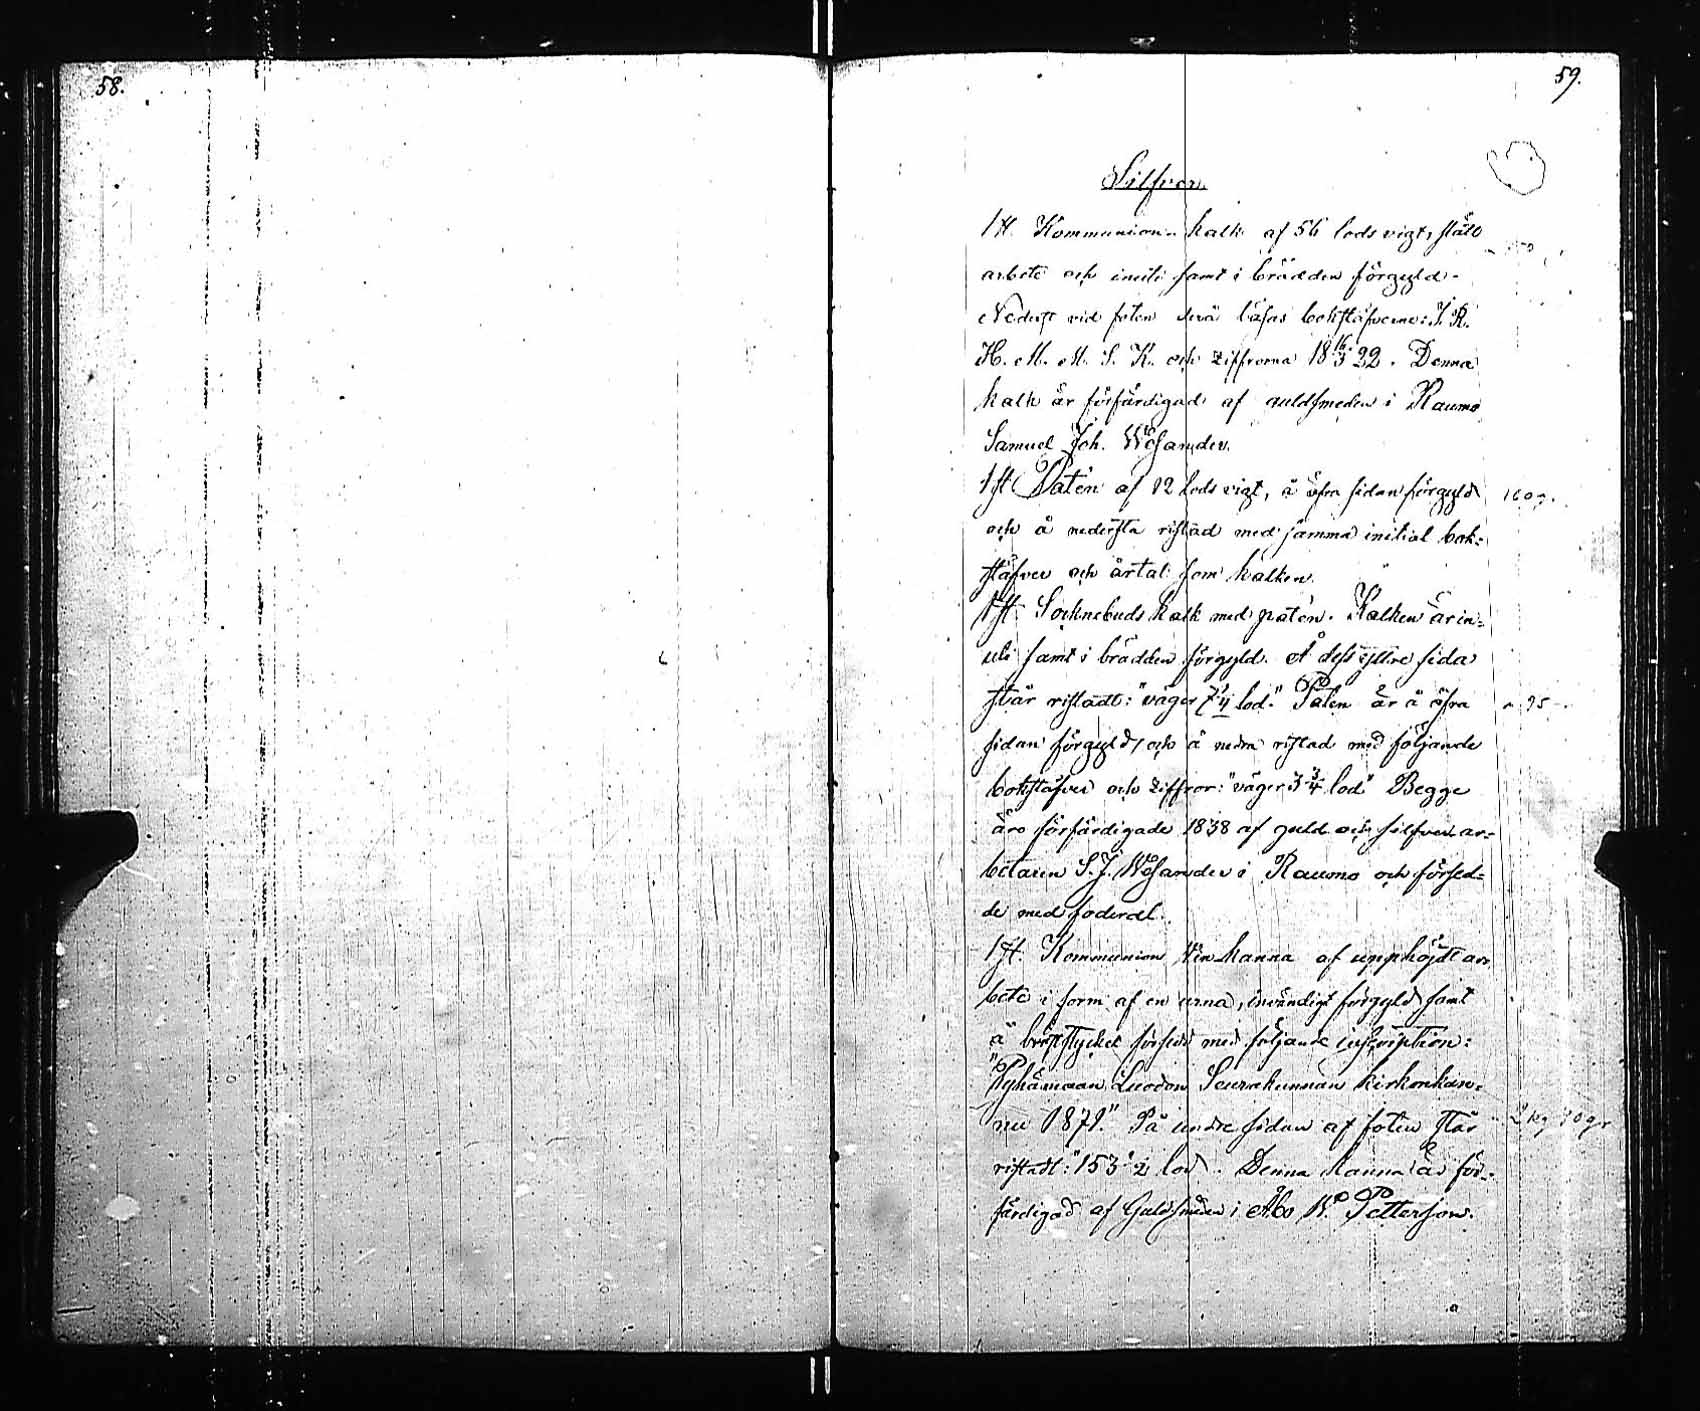 58.
59.
Silfver.
1 st. Kommunion-kalk af 56 lods vigt, slätt
arbete och inuti samt i brädden förgyld.
Nederst vid foten läsas bokstäfverne: J. R.
H. M. M. S. K. och ziffrorna 18 16/3 22. Denna
kalk är förfärdigad af guldsmeden i Raumo
Samuel Joh. Wesander.
1 st Patén af 12 lods vigt, å öfra sidan förgyld 160 g.
och å nedersta ristad med samma initial bok=
stäfver och årtal som kalken.
1 st. Socknebuds kalk med patén. Kalken är in=
uti samt i brädden förgyld. Å dess yttre sida
står ristadt: "väger 7 1/4 lod." Paten är å öfra 95
sidan förgyld, och å nedra ristad med följande
bokstäfver och ziffror: "väger 3 3/4 lod" Begge
äro förfärdigade 1838 af guld och silfver ar=
betaren S. J. Wesander i Raumo och försed=
de med foderal.
1 st. Kommunion Vin kanna af upphöjdt ar=
bete i form af en urna, invändigt förgyld samt
å bröststycket försedd med följande inscription:
"Pyhämaan Luodon Seurakunnan kirkonkan=
nu 1871." På undre sidan af foten står 2 kg 70 gr
ristadt: "153 1/2 lod. Denna kanna är för=
färdigad af Guldsmeden i Åbo W. Petterson.